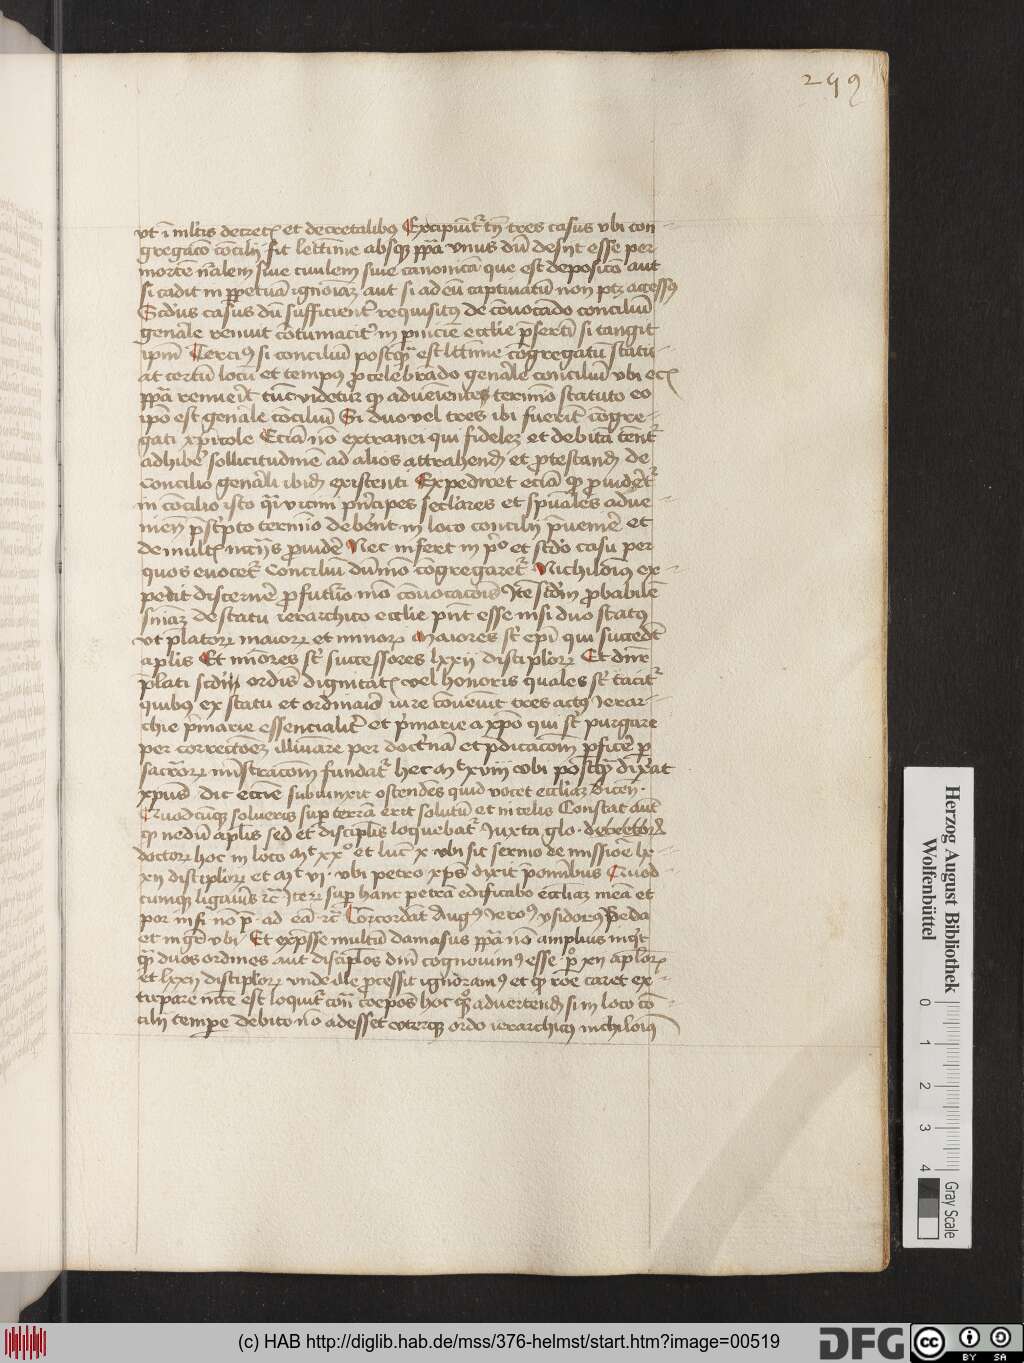 299
vt ī mltis decret et decretalibꝰ Excipiūtr tn̄ tres casus vbi con
gregaco concilij fit lettime absqꝫ ppa vnus dū desijt esse per
mortē nalem siue ciuilem siue canonicā que est deposicō aut
si cadit in ppetuā ignoiaꝫ aut si ad eū captiuatū non ptꝫ accessꝰ
Scdus casus dū sufficientr requisitꝰ de couocado conciliū
genale renuit cotumacitr in pniciē ecclie psertī si tangit
ipm̄ Terciꝰ si conciliū postqꝫ est lettime cōgregatū statu
at certū locū et tempꝰ p celebrado genale conciliū vbi eciā
ppa renueit tūc videtur qꝫ adueientes termīo statuto eo
ipo est genale conciliū Si duo vel tres ibi fuerit cōgre
gati xpicole Eciā nō extranei qui fideleꝫ et debitā tentr
adhibē sollicitudinē ad alios attrahend et ptestand de
concilio genali ibid existenti Expediret eciā qꝫ puidētr
in cōcilio isto qꝫ vicini pncipes seclares et spuales adue
nien pscpto termīo debent in loco concilij puenire et
de mult incijs puidē Nec infert in po et scdo casu per
quos euocetr conciliū dūmō cōgregaretr Nichilōiꝰ ex
pedit discernē p futuro mō conuocacois Ite scdm pbabilē
sniaꝫ de statu ierarchico ecclie pnt esse nisi duo statꝰ
vt platoꝝ maioꝝ et minoꝝ Maiores st epi qui succedt
aplis Et minores st successores lxxij disciploꝝ Et dnr
plati scdm ordīs dignitat vel honoris quales st tacitr
quibꝰ ex statu et ordinaio iure cōueiūt tres actꝰ ierar
chie pmarie essencialitr et pmarie a xpo qui st purgare
per correctoeꝫ illuiare per doctnā et pdicacom pficē p
sacroꝝ mistracom fundatr hec Mt xviij vbi postqꝫ dixat
xpus dic ecciē subiunxit ostendēs quid vocet eccliaꝫ dicen
Quodcūqꝫ solueris sup terrā erit solutū et in celis Constat aut
qꝫ nedū aplis sed et disciplis loquebatr Iuxta glo decretoꝝ
doctoꝝ hoc in loco Mt xxo et luc x vbi fit sermo de missiōe lx
xij disciploꝝ et Mt vj vbi petro xps dixit pomībus Quod
cumqꝫ ligauis rc Iteꝝ sup hanc petrā edificabo eccliaꝫ meā et
por infi no p ad eā rc Corcordāt Augꝰ Ieroꝰ ysidorꝰ Beda
et in gr vbi Et expsse multū damasus ppa nō amplius inqt
qꝫ duos ordines aut disciplos dni cognouimꝰ esse po xij aploꝝ
et lxxij disciploꝝ vnde ille pcessit ignoramꝰ et qꝫ roe caret ex
tirpare
cilij tempe debito nō adesset vterqꝫ ordo ierarchicꝰ nichiloiꝰ
Herzog August Bibliothek
Wolfenbüttel
0 1 2 3 4
Gray Scale
(c) HAB http://diglib.hab.de/mss/376-helmst/start.htm?image=00519
DFG
cc
BY SA